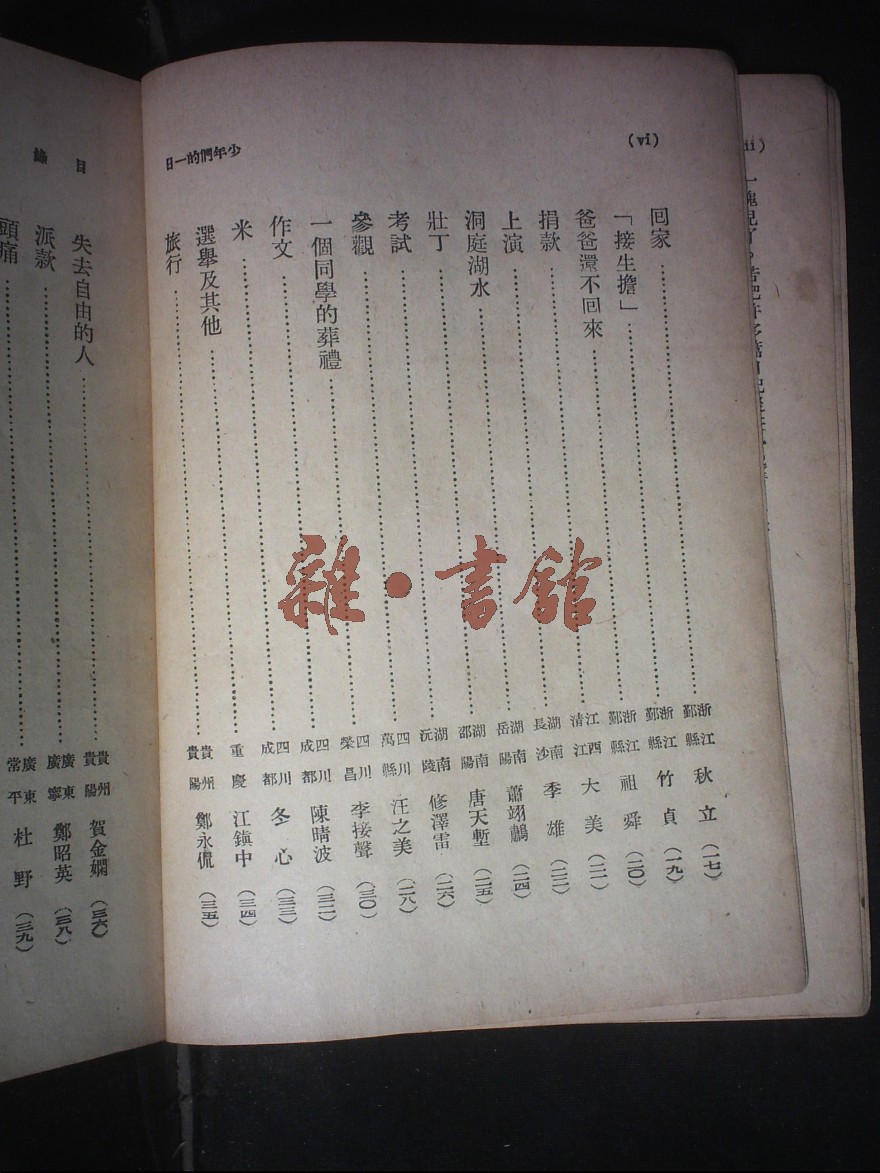 (vi)
少年們的一日
回家 浙江鄞縣 秋立 (一七)
「接生擔」 浙江鄞縣 竹貞 (一九)
爸爸還不回來 浙江鄞縣 祖舜 (二〇)
捐款 江西清江 大美 (二一)
上演 湖南長沙 季雄
洞庭湖水 湖南岳陽 蕭翊 (二四)
壯丁 湖南邵陽 唐天塹 (二五)
考試 湖南沅陵 修澤雷 (二六)
參觀 四川萬縣 汪之美 (二八)
一個同學的葬禮 四川榮昌 李接聲 (三〇)
作文 四川成都 陳晴波 (三二)
米 四川成都 冬心 (三三)
選舉及其他 重慶 江鎮中 (三四)
旅行 貴州貴陽 鄭永侃 (三五)
目錄
失去自由的人 貴州貴陽 賀金嫻 (三六)
派款 廣東廣寧 鄭昭英 (三八)
頭痛 廣東常平 杜野 (三九)
雜·書館